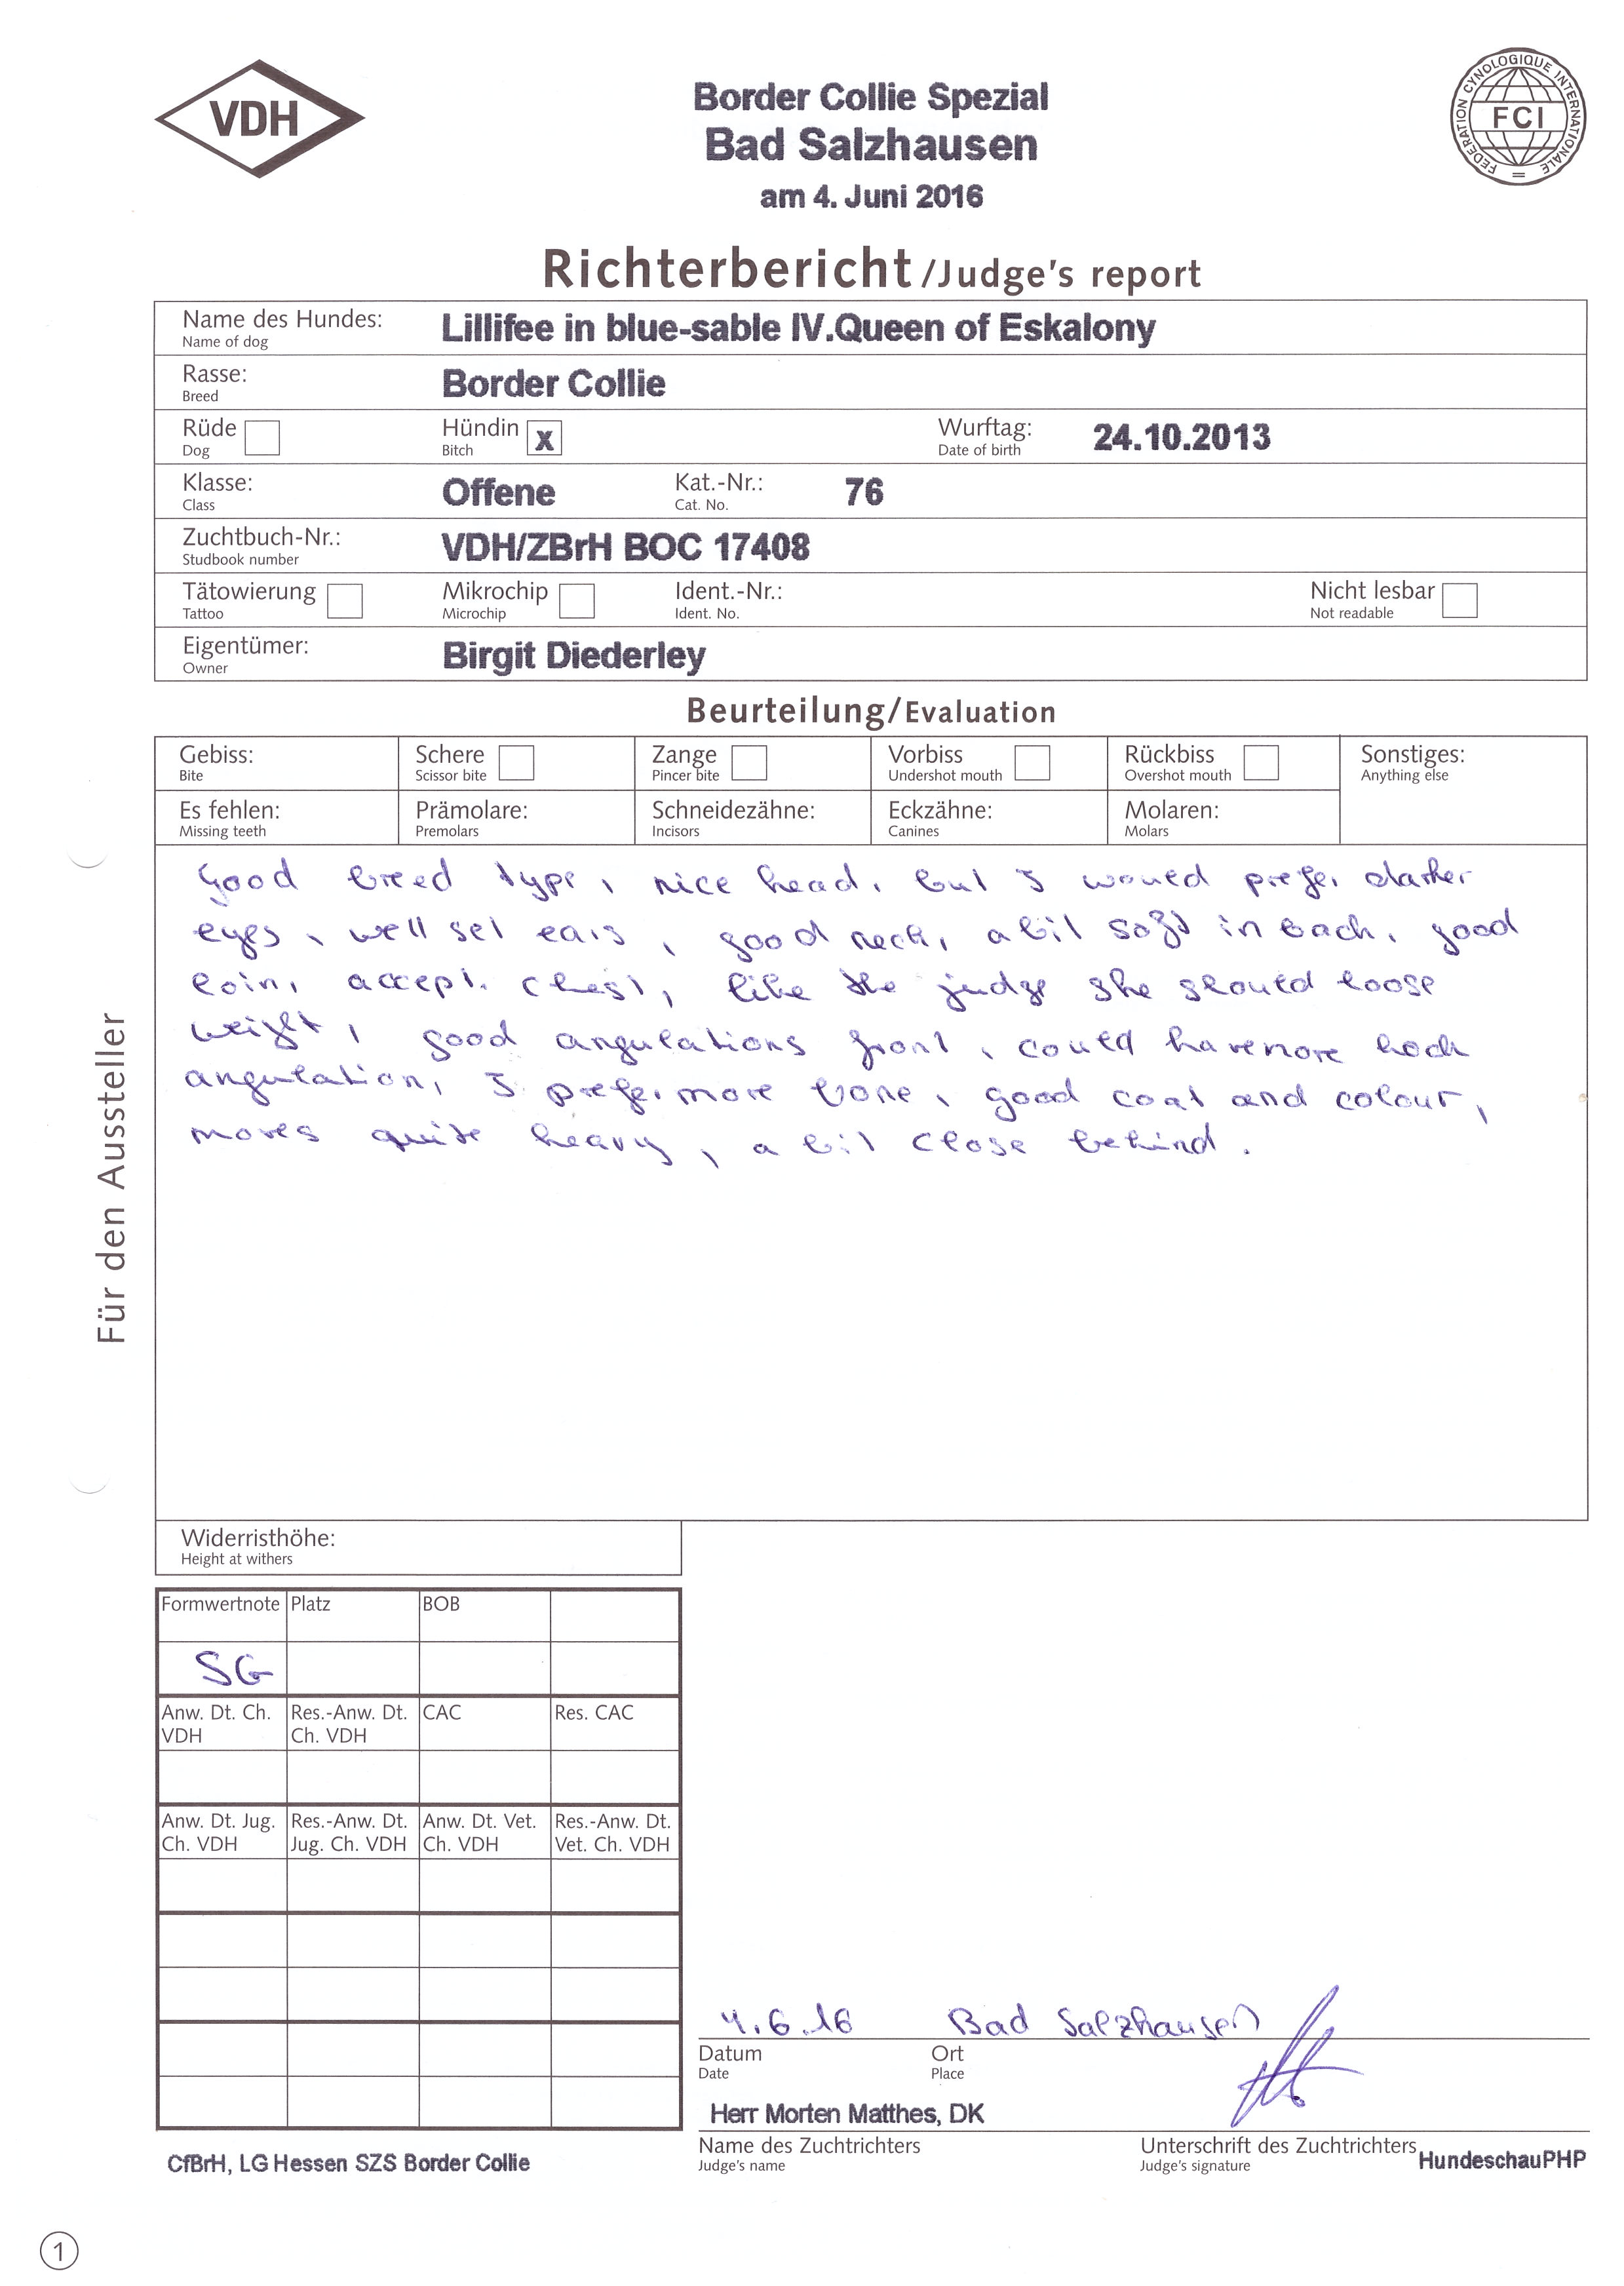 VDH
Border Collie Spezial
Bad Salzhausen
am 4. Juni 2016
FEDERATION CYNOLOGIQUE INTERNATIONALE
FCI
Richterbericht /Judge's report
Name des Hundes: Lillifee in blue-sable IV.Queen of Eskalony
Name of dog
Rasse: Border Collie
Breed
Rüde Hündin x Wurftag: 24.10.2013
Dog Bitch Date of birth
Klasse: Offene Kat.-Nr.: 76
Class Cat. No.
Zuchtbuch-Nr.: VDH/ZBrH BOC 17408
Studbook number
Tätowierung Mikrochip Ident.-Nr.: Nicht lesbar
Tattoo Microchip Ident. No. Not readable
Eigentümer: Birgit Diederley
Owner
Beurteilung/Evaluation
Gebiss: Schere Zange Vorbiss Rückbiss Sonstiges:
Bite Scissor bite Pincer bite Undershot mouth Overshot mouth Anything else
Es fehlen: Prämolare: Schneidezähne: Eckzähne: Molaren:
Missing teeth Premolars Incisors Canines Molars
Good breed type, nice head, but I would prefer darker
eyes, well set ears, good neck, a bit soft in back, good
loin, accept. chest, like the judge she should loose
weight, good angulations front, could have more hock
angulation, I prefer more bone, good coat and colour,
moves quite heavy, a bit close behind.
Für den Aussteller
Widerristhöhe:
Height at withers
Formwertnote Platz BOB
SG
Anw. Dt. Ch. Res.-Anw. Dt. CAC Res. CAC
VDH Ch. VDH
Anw. Dt. Jug. Res.-Anw. Dt. Anw. Dt. Vet. Res.-Anw. Dt.
Ch. VDH Jug. Ch. VDH Ch. VDH Vet. Ch. VDH
4.6.16 Bad Salzhausen
Datum Ort
Date Place
Herr Morten Matthes, DK
Name des Zuchtrichters Unterschrift des Zuchtrichters HundeschauPHP
Judge's name Judge's signature
CfBrH, LG Hessen SZS Border Collie
1